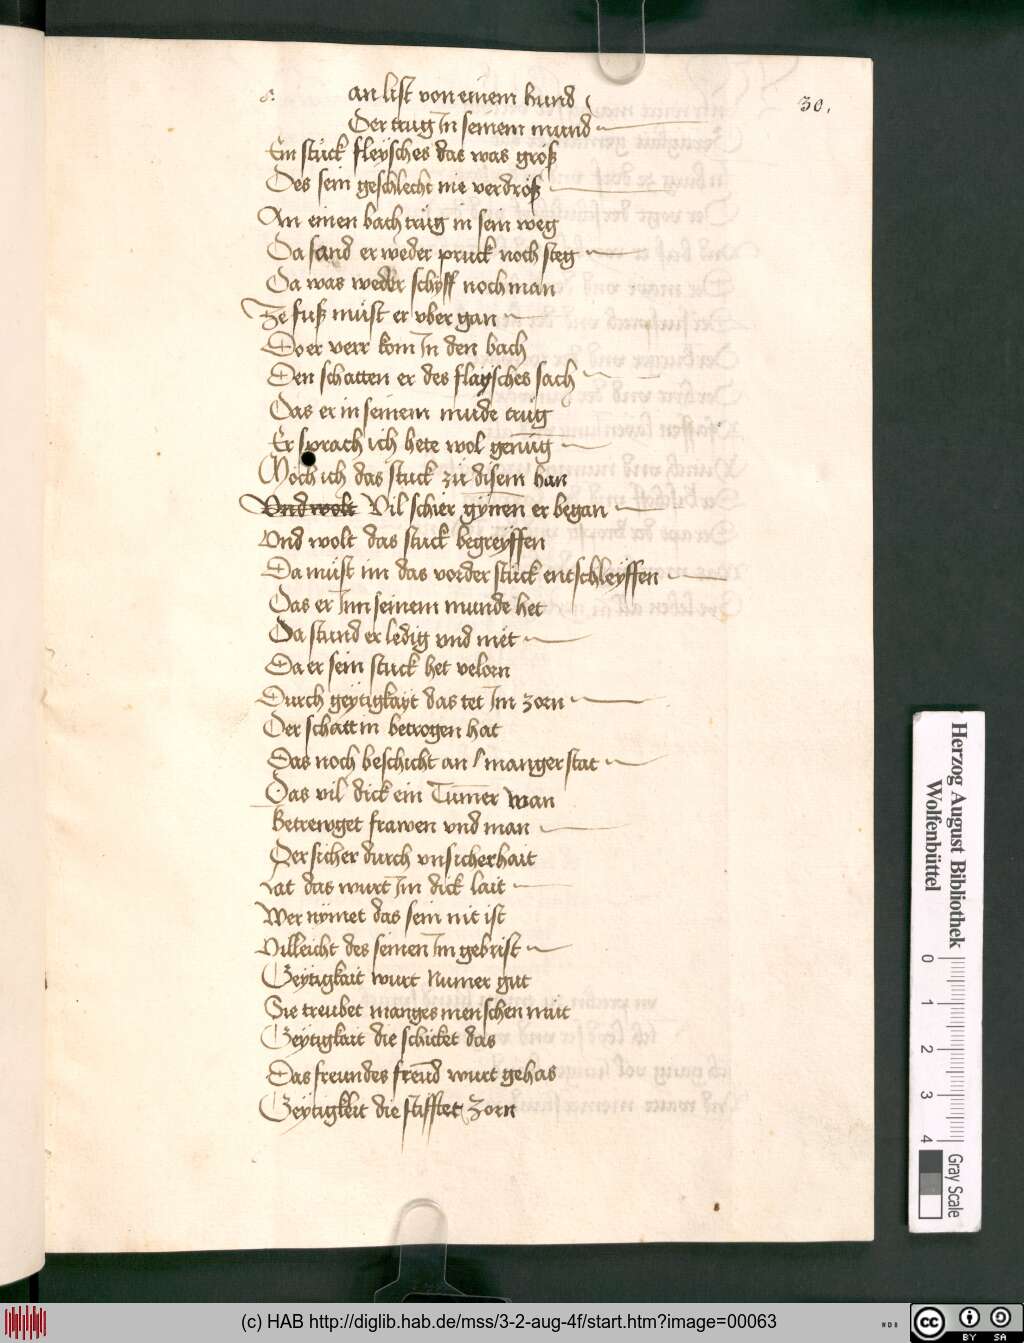 30.
an list von einem hund
Der trug In seinem mund
Ein stück fleysches das was groß
Des sein geschlecht nie verdröß
An einen bach trüg in sein weg
Da fand er weder pruck noch steg
Da was weder schyff noch man
Ze fuß müst er vber gan
Do er verr kom In den bach
Den schatten er des flaysches sach
Das er in seinem mude trüg
Er sprach ich hete wol genüg
Möcht ich das stuck zü disem han
Vnd wolt Vil schier gynen er began
Vnd wolt das stuck begreyffen
Da müst im das vorder stück entschleyffen
Das er Inn seinem munde het
Da stund er ledig vnd niet
Da er sein stuck het velorn
Durch geytigkayt das tet Im zorn
Der schatt in betrogen hat
Das noch beschicht an manger stat
Das vil dick ein Tumer wan
Betrewget frawen vnd man
Der sicher durch vnsicherhait
Lat das wurt Im dick lait
Wer nymet das sein nit ist
Villeicht des seinen Im gebrist
Geytigkait wurt Numer gut
Sie treubet manges menschen müt
Geytigkait die schicket das
Das freundes freund wurt gehas
Geytigkeit die stifftet Zorn
Herzog August Bibliothek
Wolfenbüttel
0 1 2 3 4
Gray Scale
(c) HAB http://diglib.hab.de/mss/3-2-aug-4f/start.htm?image=00063
cc BY SA